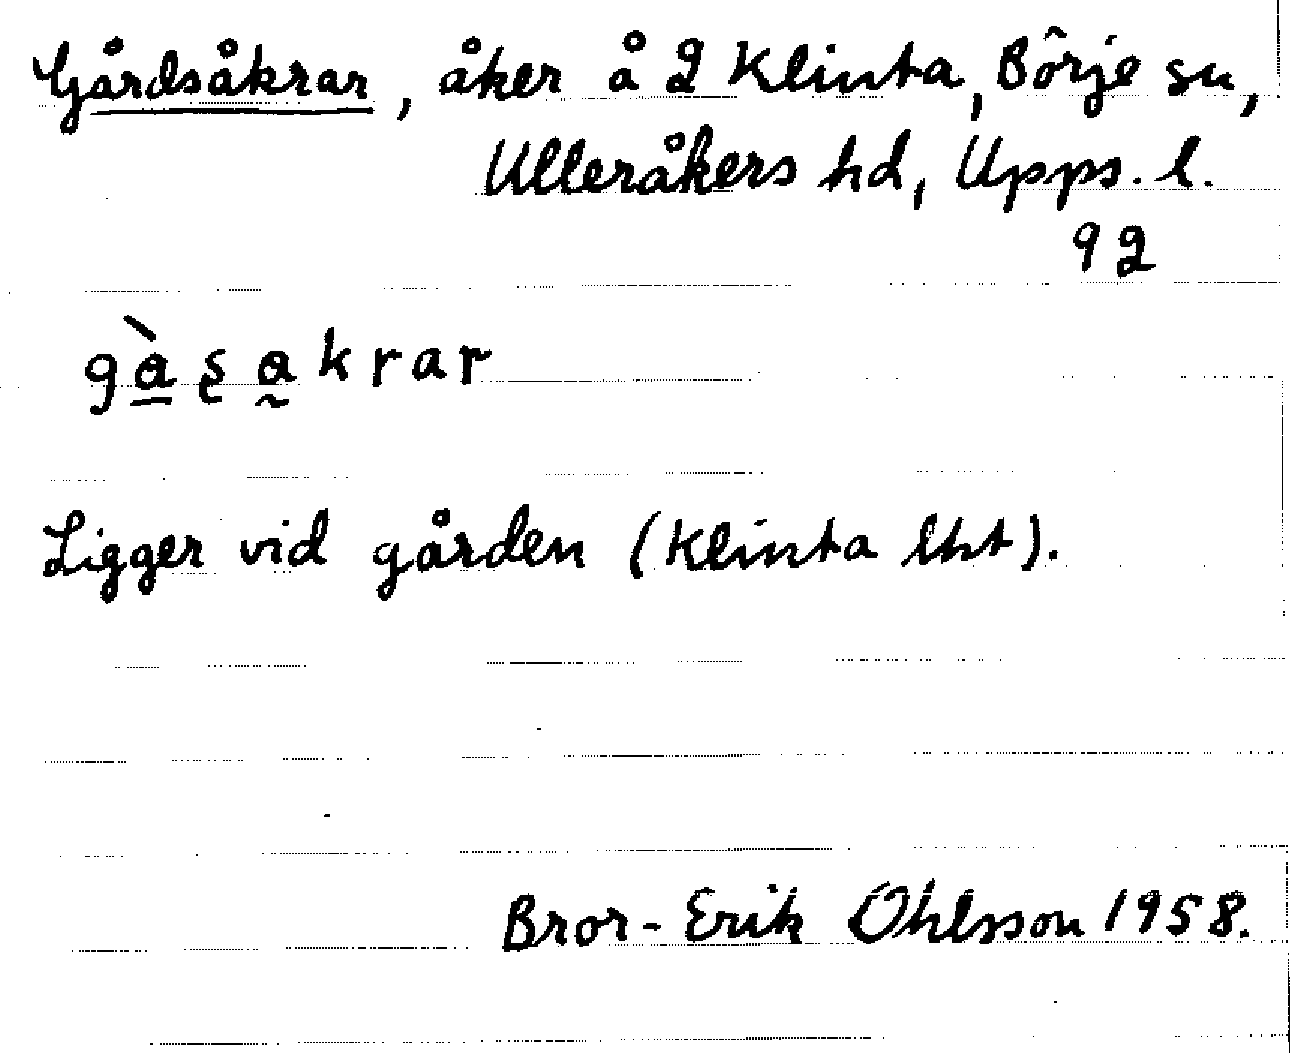 Gårdsåkrar, åker å 2 Klinta, Börje sn,
Ulleråkers hd, Upps. l.
92
gàʂakrar
Ligger vid gården (Klinta lht).
Bror-Erik Ohlsson 1958.